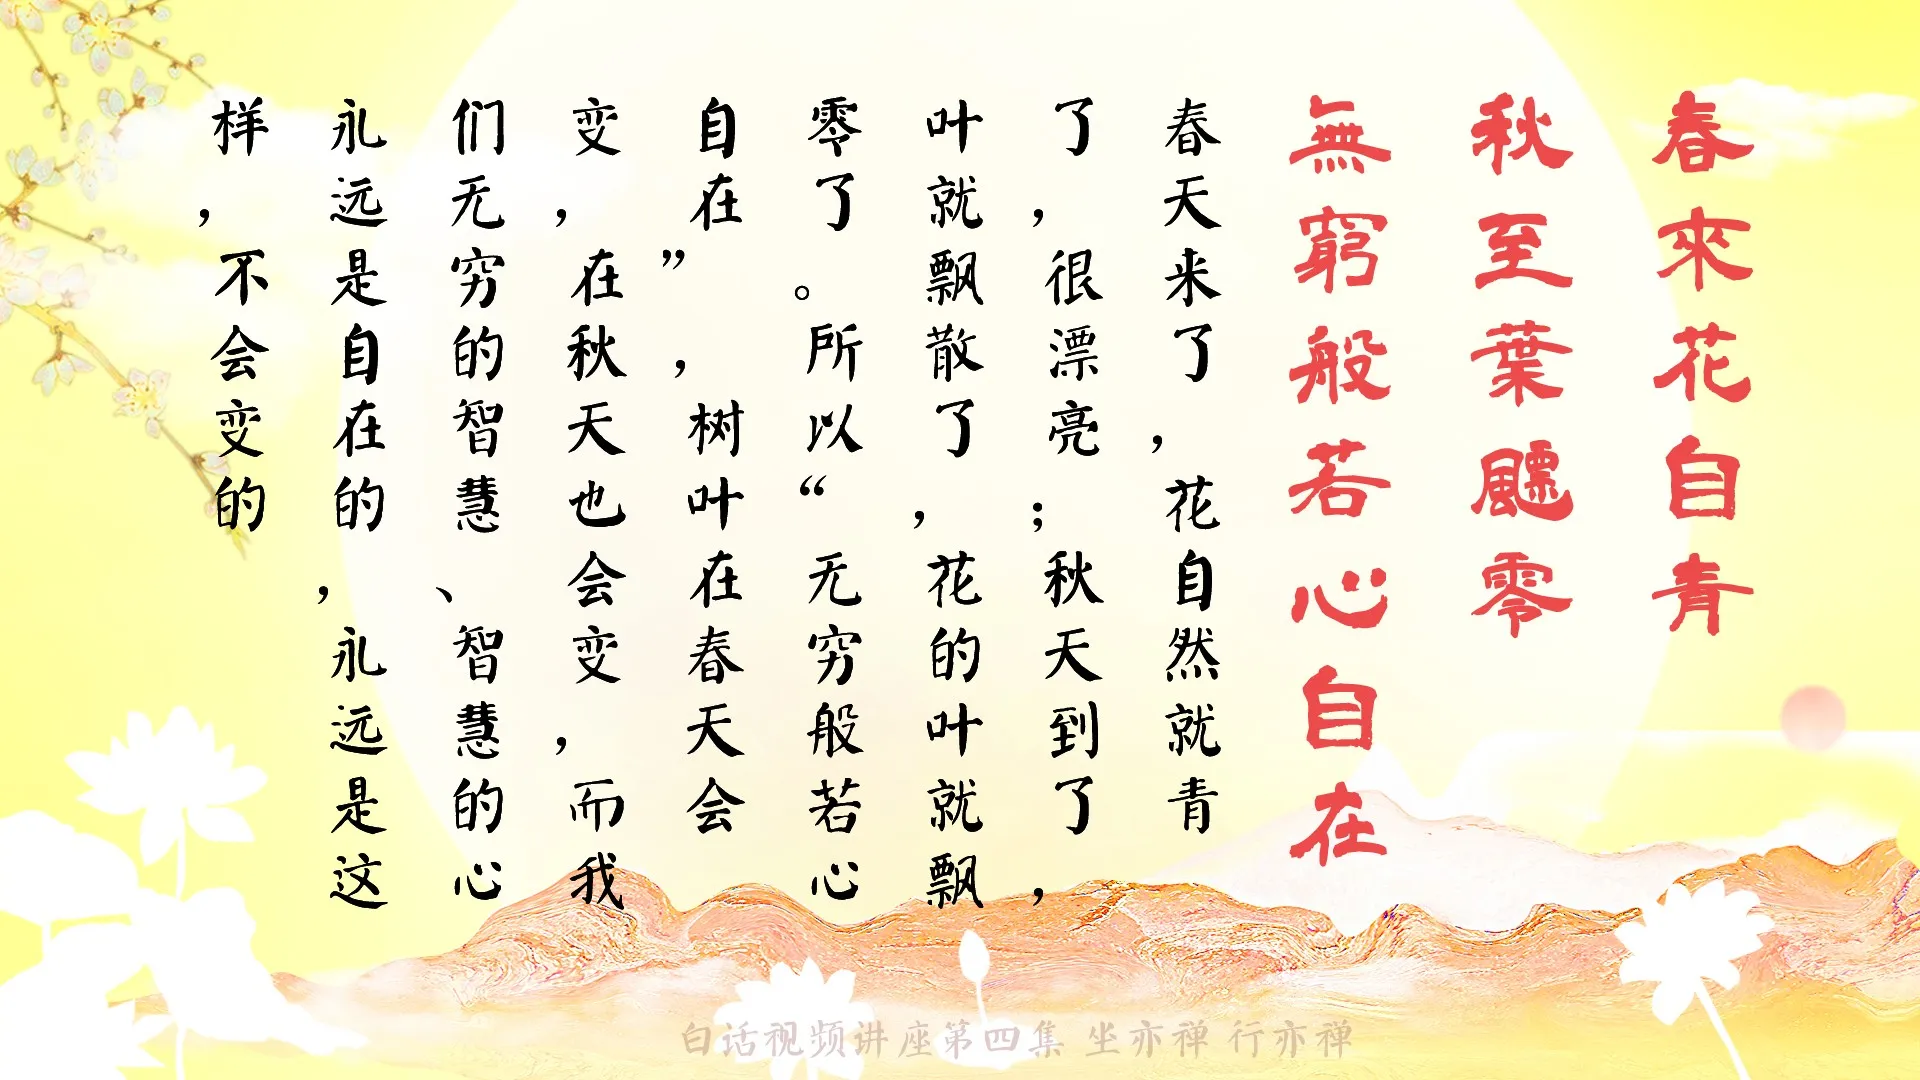 春來花自青
秋至葉飄零
無窮般若心自在
春天来了，花自然就青
了，很漂亮；秋天到了，
叶就飘散了，花的叶就飘
零了。所以“无穷般若心
自在”，树叶在春天会
变，在秋天也会变，而我
们无穷的智慧、智慧的心
永远是自在的，永远是这
样，不会变的
白话视频讲座第四集 坐亦禅 行亦禅